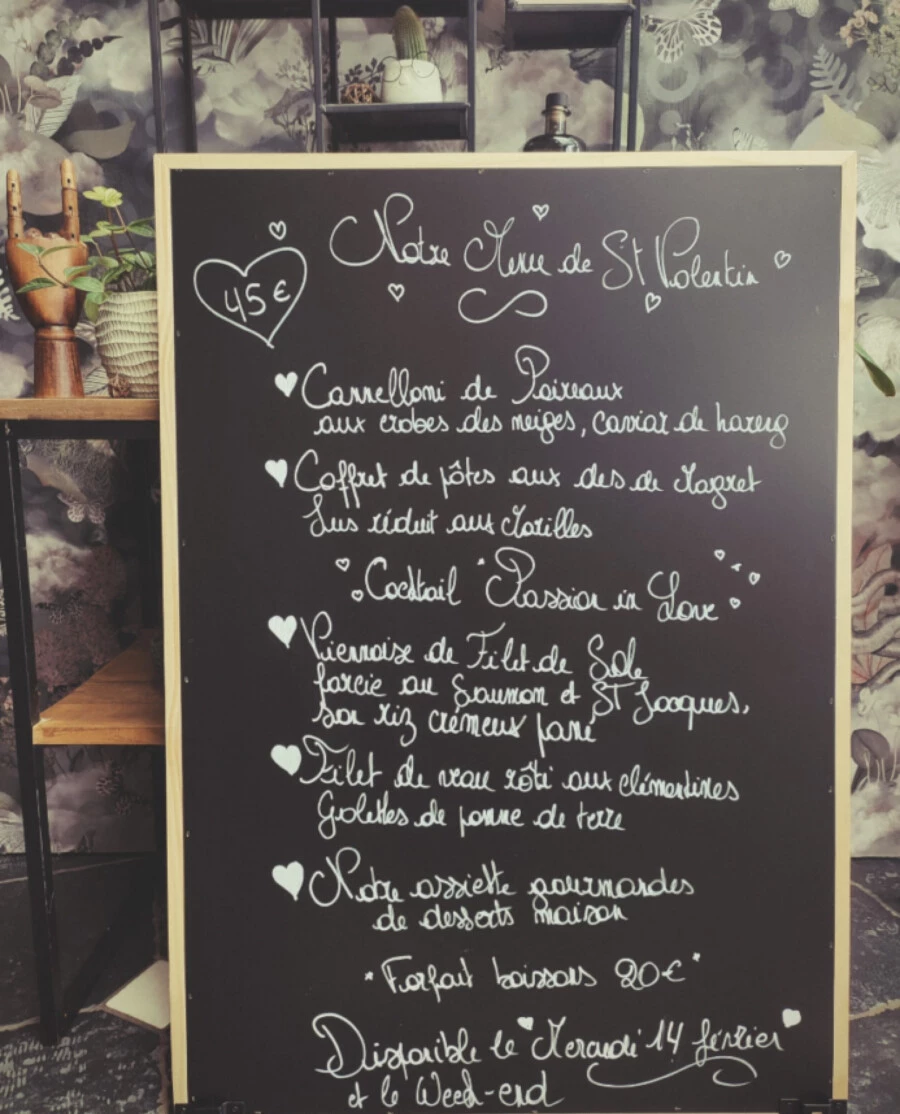 Notre Menu de St Valentin
45€
Cannelloni de Poireaux
aux crabes des neiges, caviar de hareng
Coffret de pâtes aux dés de Magret
Jus réduit aux Morilles
Cocktail "Passion in Love"
Viennoise de Filet de Sole
farcie au Saumon et ST Jacques,
son riz crémeux pané
Filet de veau rôti aux clémentines
Galettes de pomme de terre
Notre assiette gourmandes
de desserts maison
Forfait boissons 20€
Disponible le Mercredi 14 février
et le Week-end